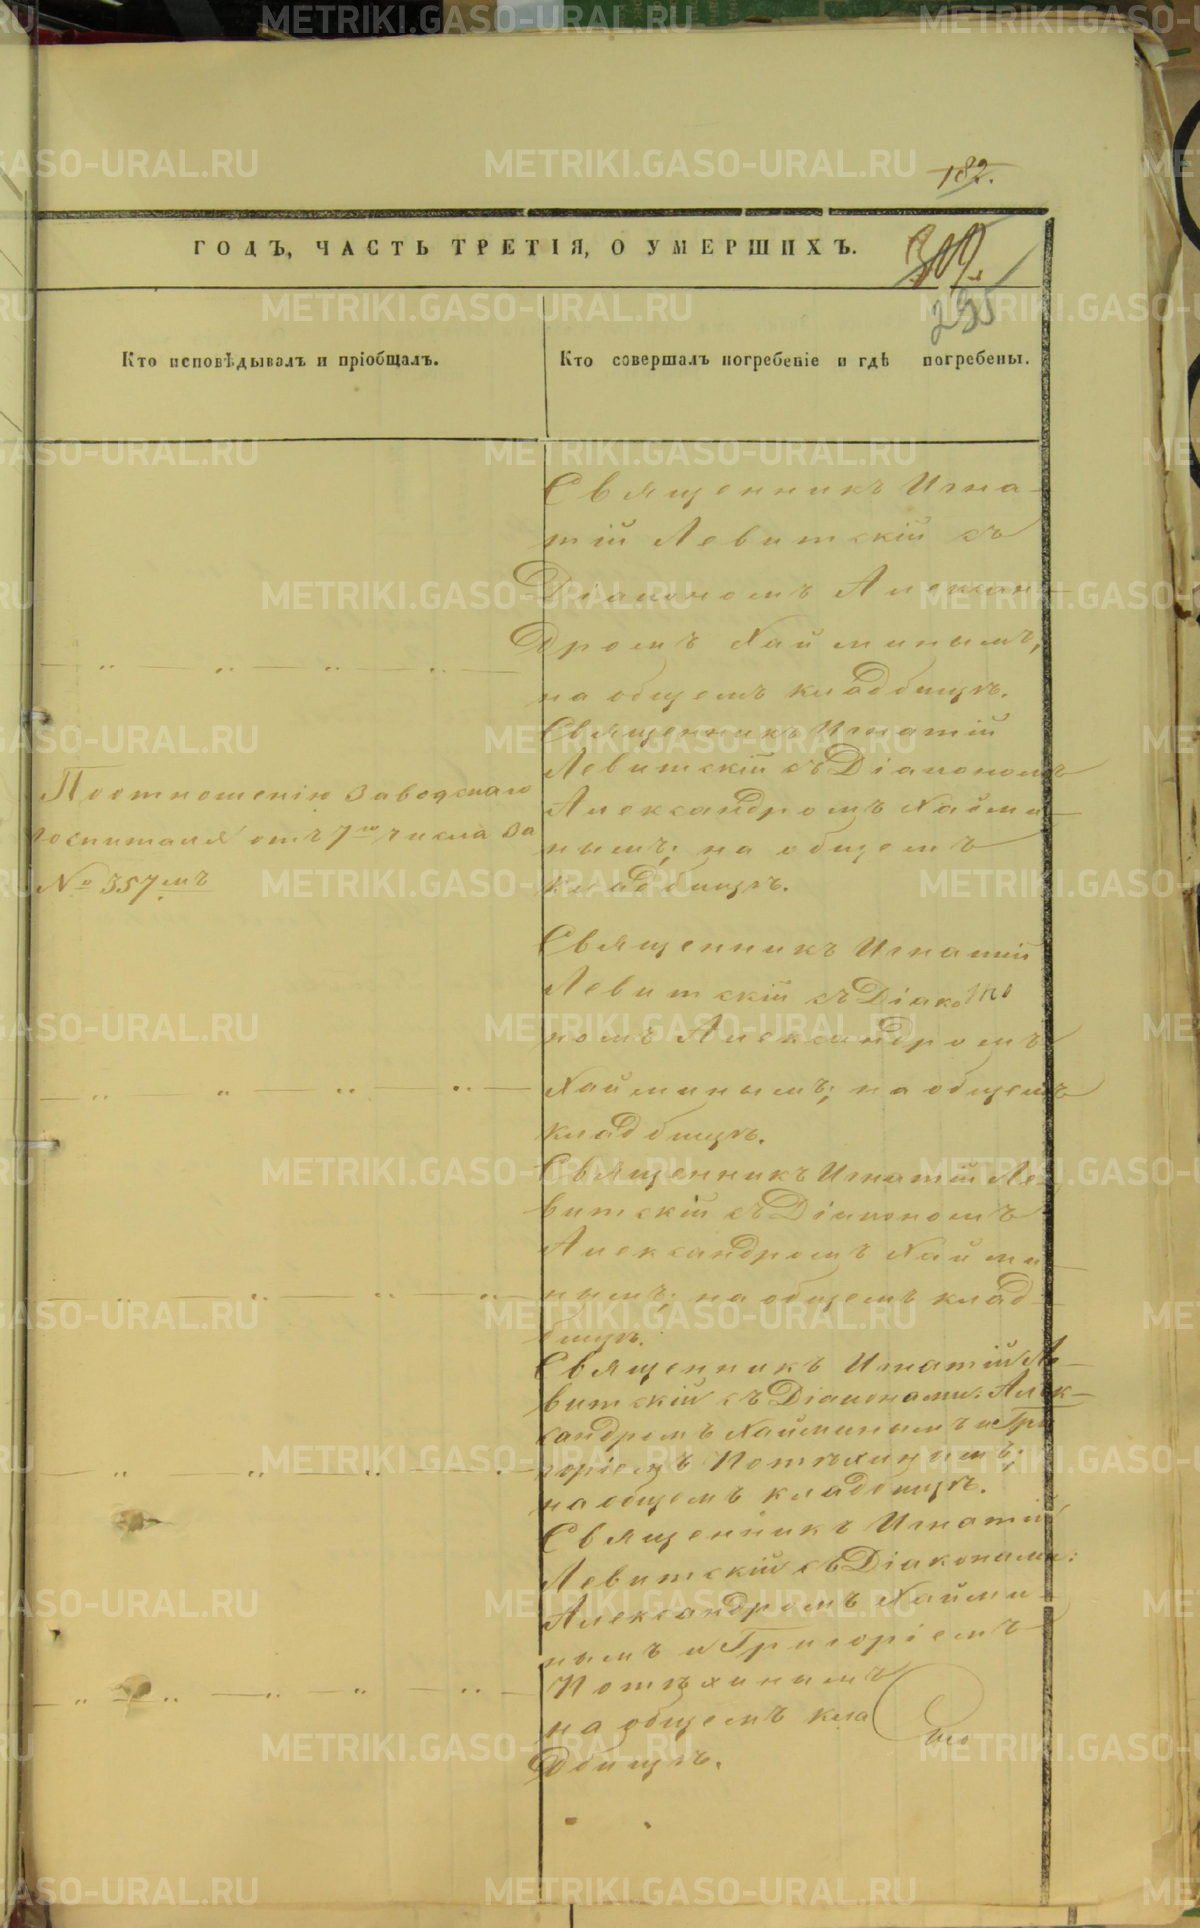 182.
ГОДЪ, ЧАСТЬ ТРЕТІЯ, О УМЕРШИХЪ.
309.
235
Кто исповѣдывалъ и пріобщалъ.
Кто совершалъ погребеніе и гдѣ погребены.
Священникъ Игна-
тій Левитскій съ
Діакономъ Алексан-
дромъ Наймину́мъ,
на общемъ кладбищѣ.
Священникъ Игнатій
Левитскій съ Діакономъ
Александромъ Найми-
нымъ; на общемъ
кладбищѣ.
По отношенію Заводскаго
госпиталя отъ 7го числа за
№ 357мъ
Священникъ Игнатій
Левитскій съ Діако
номъ Александромъ
Найминымъ; на общемъ
кладбищѣ.
Священникъ Игнатій Ле-
витскій съ Діакономъ
Александромъ Найми-
нымъ; на общемъ клад-
бищѣ.
Священникъ Игнатій Ле-
витскій съ Діаконами: Алек-
сандромъ Найминымъ и Гри
горіемъ Потѣхинымъ;
на общемъ кладбищѣ.
Священникъ Игнатій
Левитскій съ Діаконами:
Александромъ Найми-
нымъ и Григоріемъ
Потѣхинымъ
на общемъ кла
дбищѣ.
METRIKI.GASO-URAL.RU